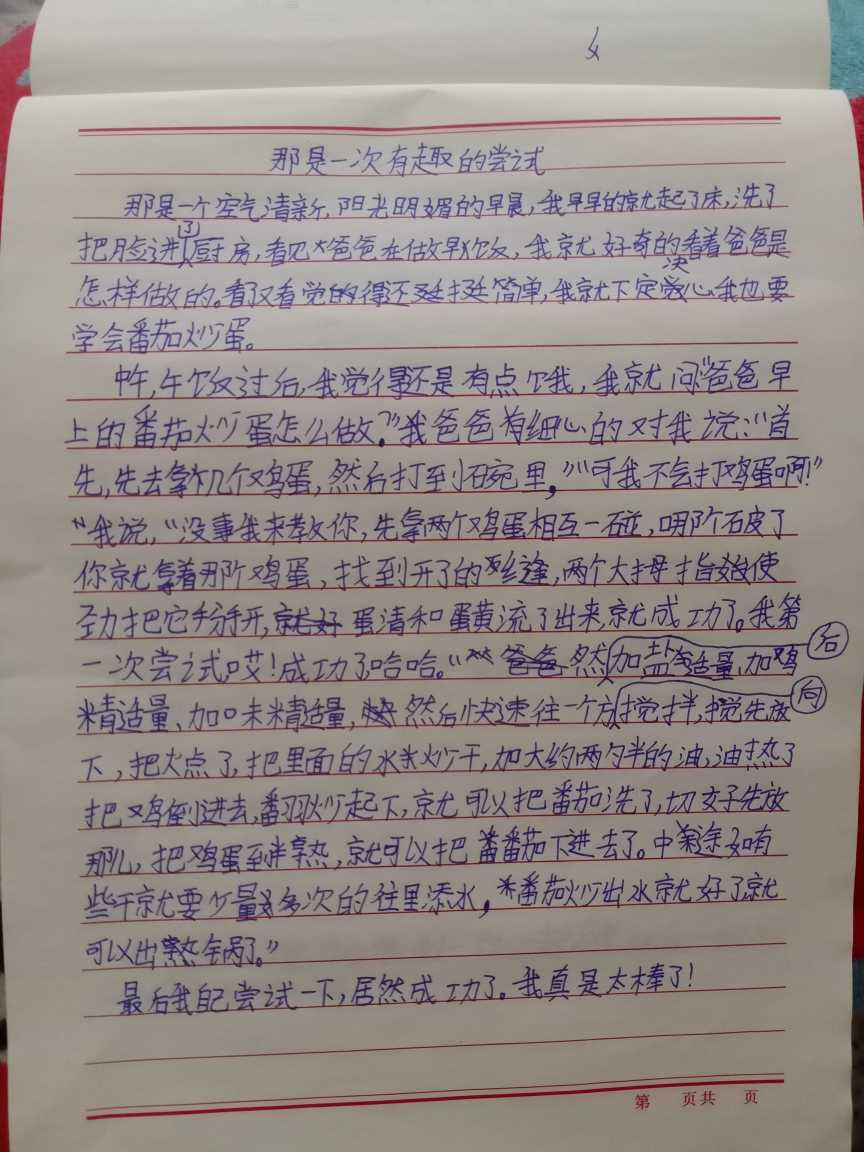 那是一次有趣的尝试
那是一个空气清新,阳光明媚的早晨,我早早的就起了床,洗了
把脸进了厨房,看见爸爸在做早饭,我就好奇的看着爸爸是
怎样做的。看了又看觉的得还挺简单,我就下定决心我也要
学会番茄炒蛋。
中午,午饭过后,我觉得还是有点饿,我就问:“爸爸早
上的番茄炒蛋怎么做?”爸爸有细心的对我说:“首
先,先去拿几个鸡蛋,然后打到碗里,”“可我不会打鸡蛋啊!”
“我说,“没事我来教你,先拿两个鸡蛋相互一碰,哪个破了
你就拿着那个鸡蛋,找到开了的裂缝,两个大拇指使
劲把它掰开,蛋清和蛋黄流了出来,就成功了。我第
一次尝试哎!成功了哈哈。”然后加盐适量、加鸡
精适量、加味精适量,然后快速往一个方向搅拌,先放
下,把火点了,把里面的水炒干,加大约两勺半的油,油热了
把鸡倒进去,翻炒起下,就可以把番茄洗了,切好先放
那儿,把鸡蛋到半熟,就可以把番茄下进去了。中途如有
些干就要少量多次的往里添水,番茄炒出水就好了就
可以出锅了。”
最后我自己尝试一下,居然成功了。我真是太棒了!
第 页共 页